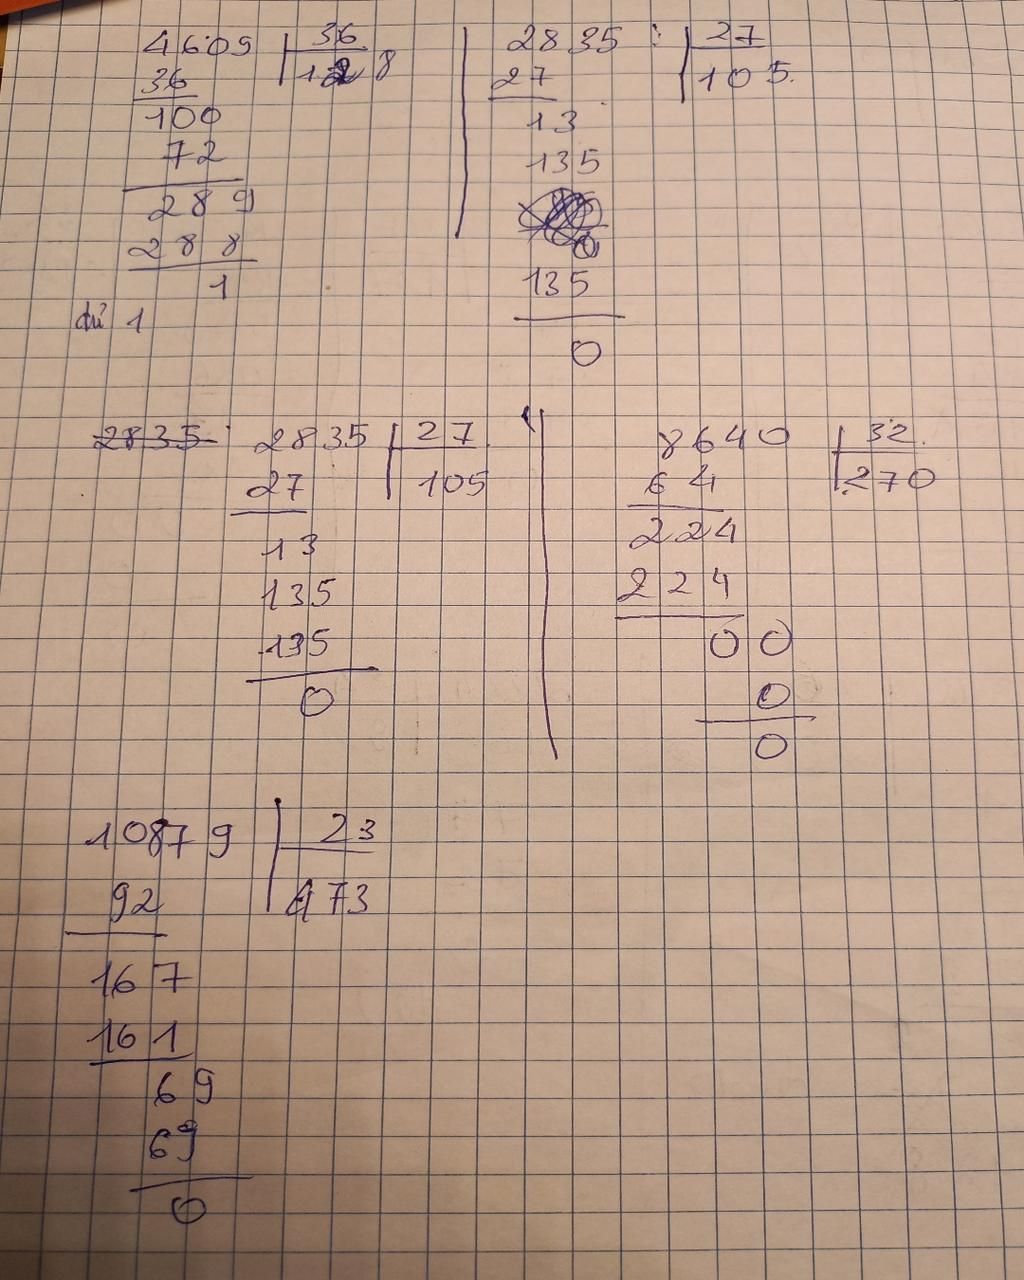 4609 36
36 128
100
72
289
288
1
dư 1
2835 : 27
27 105.
13
135
0
135
0
2835 2835 27
27 105
13
135
135
0
8640 32
64 270
224
224
00
0
0
10879 23
92 473
167
161
69
69
0